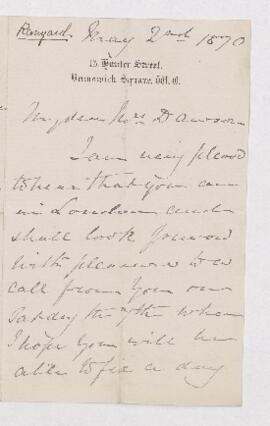 Ranyard. May 2nd 1870
13 Hunter Street.
Brunswick Square. W.C.
My dear Mrs Dawson
I am very pleased
to hear that you are
in London and
shall look forward
with pleasure to a
call from you on
Satday the 7th when
I hope you will be
able to fix a day